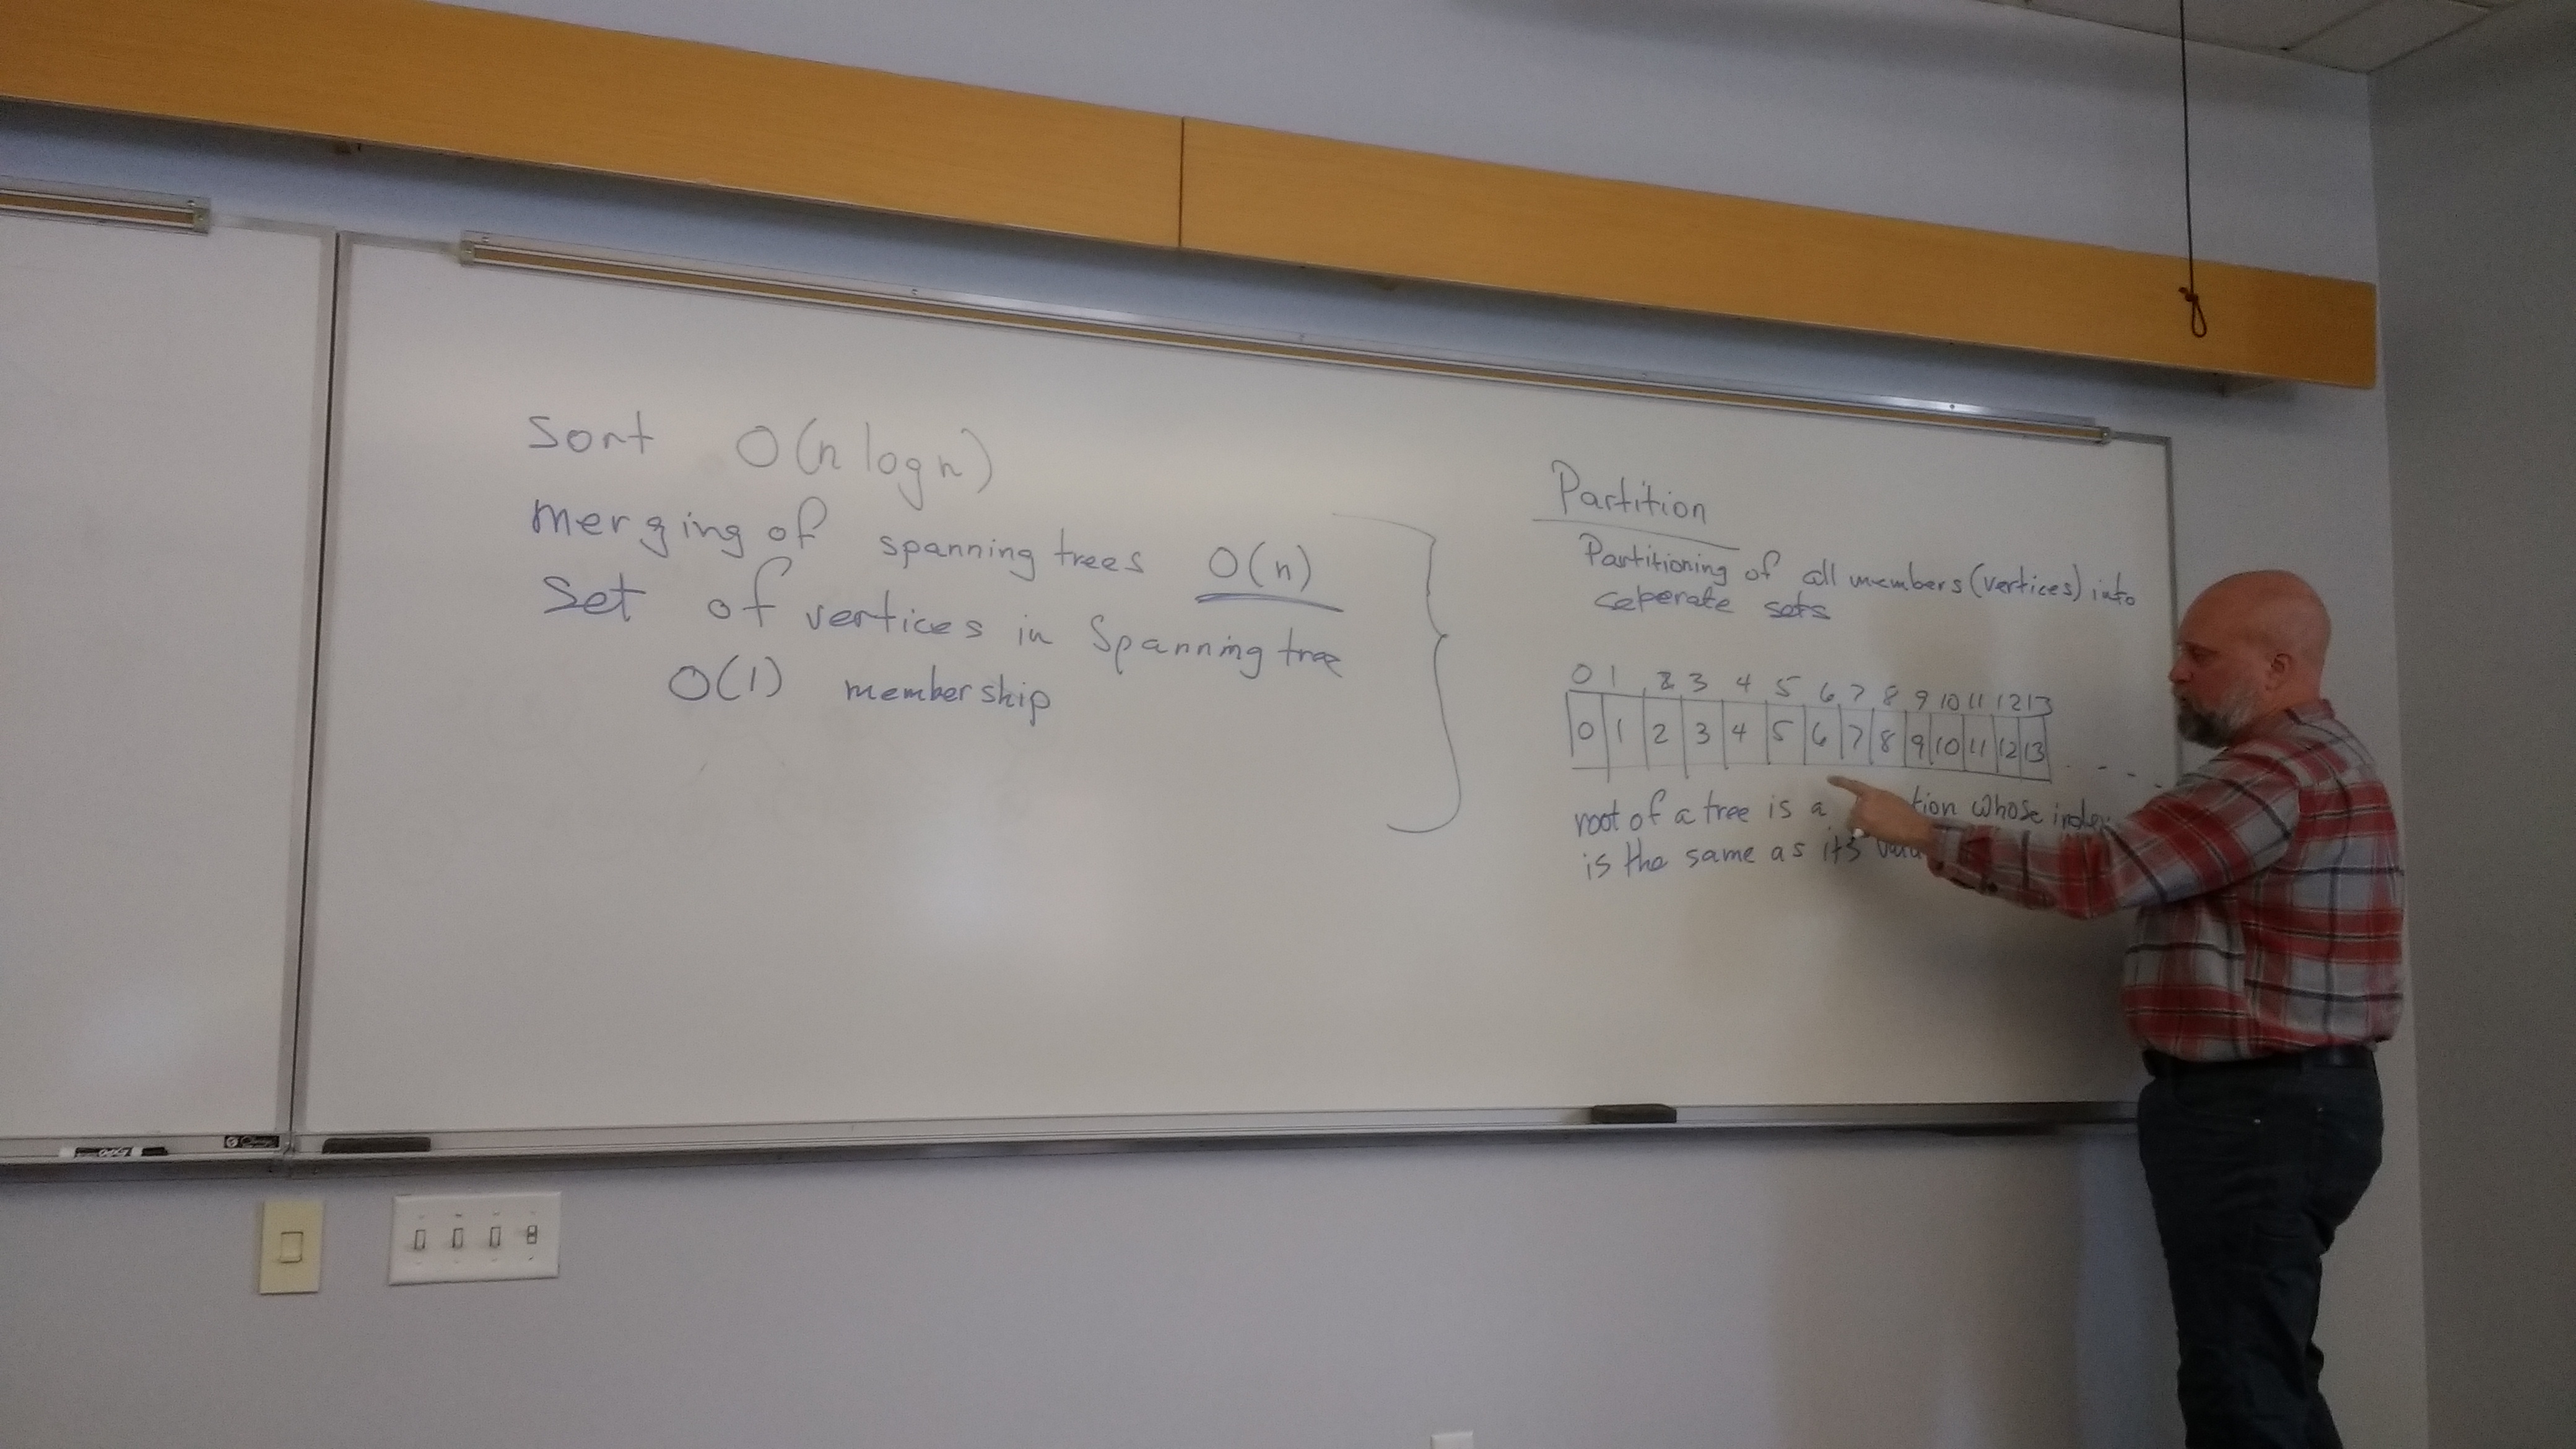 sort O(n log n)
merging of spanning trees O(n)
Set of vertices in Spanning tree
O(1) membership
Partition
Partitioning of all members (vertices) into
seperate sets
0 1 2 3 4 5 6 7 8 9 10 11 12 13
0 1 2 3 4 5 6 7 8 9 10 11 12 13 - - -
root of a tree is a whose index
is the same as it's